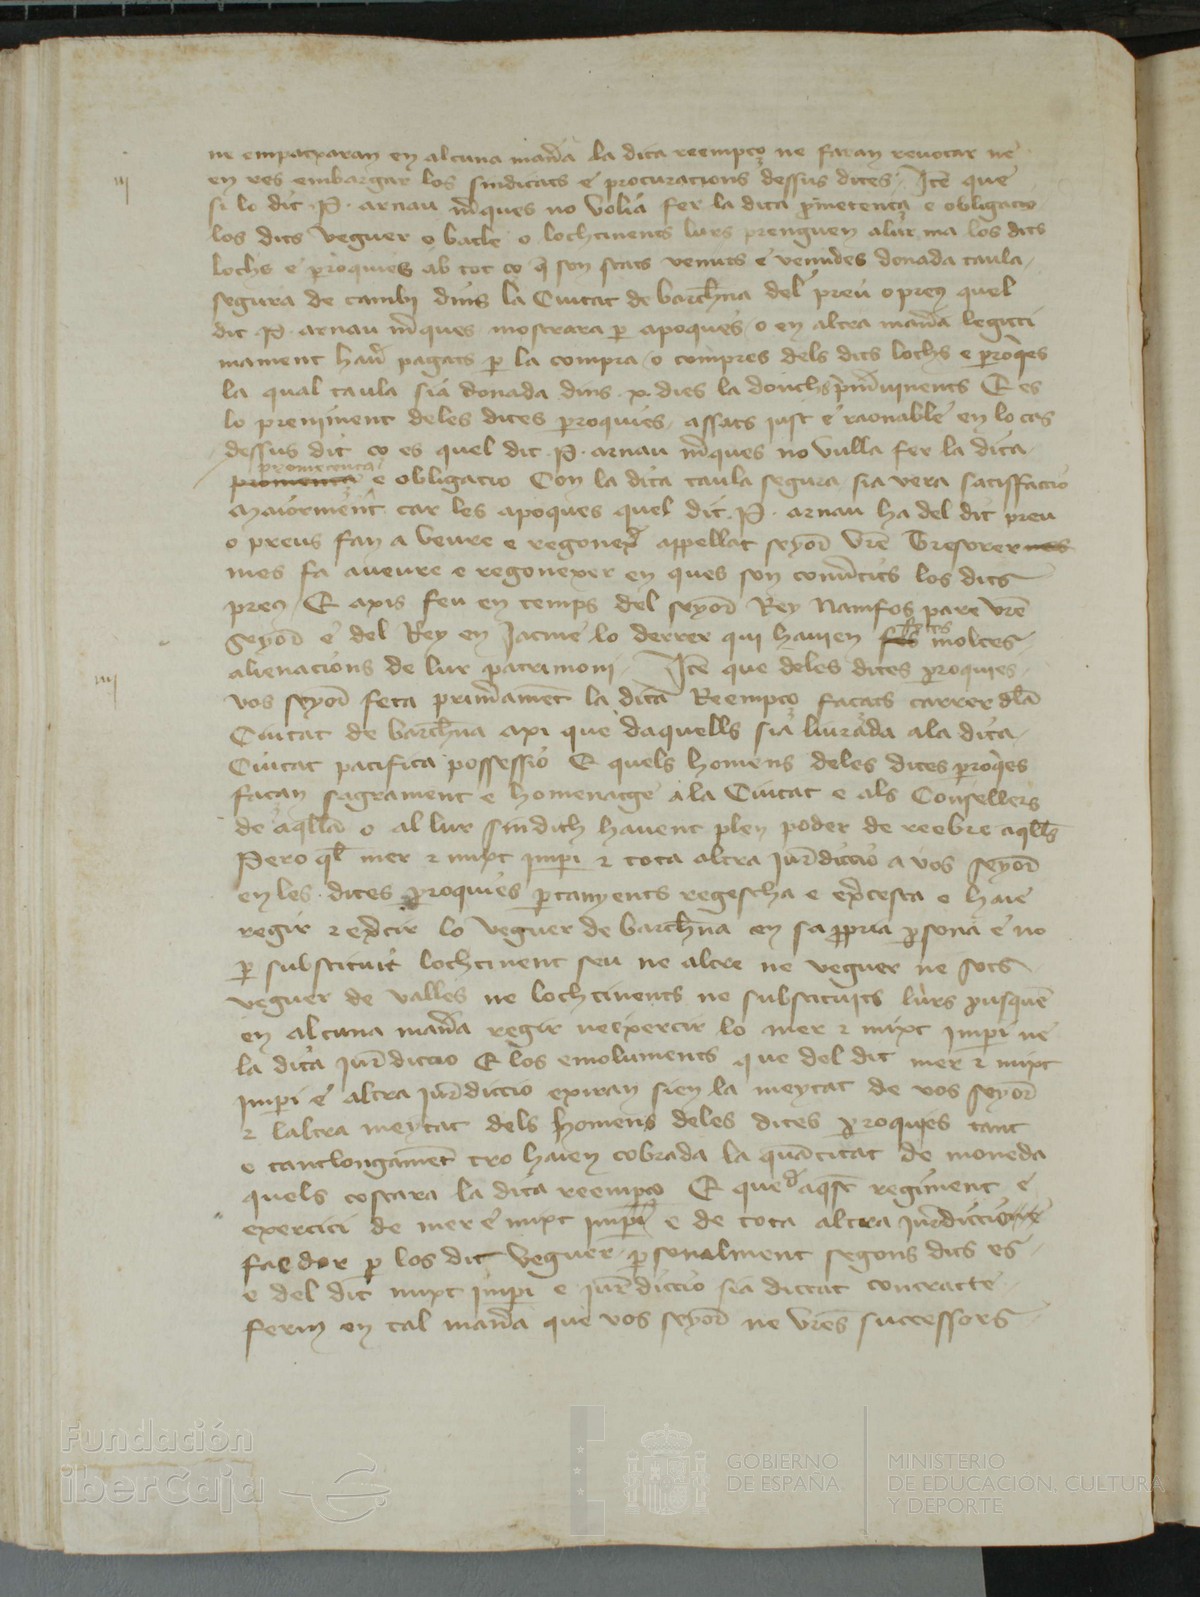 ne empatxaran en alcuna man̄a la dita reempço ne faran revocar ne
en res embargar los sindicats e procuracions dessus dites. Itē que
iij
si lo dit .P. arnau m̄ques no volia fer la dita p̄metença e obligacio
los dits veguer o batle o lochtinents lurs prenguen a lur ma los dits
lochs e p̄roquies ab tot ço q̄ son stats venuts e venudes donada taula
segura de cambi dins la Ciutat de barchn̄a del preu o preus quel
dit .P. arnau m̄ques mostrara p̱ apoques o en altra man̄a legitti
mament hav̄ pagats p̱ la compra o compres dels dits lochs e p̱roq̄es
la qual taula sia donada dins .x. dies la donchs p̄m̄vinents E es
lo preniment deles dites p̱roquies assats iust e raonable en lo cas
dessus dit ço es quel dit .P. arnau m̄ques no vulla fer la dita
prometença
e obligacio Con la dita taula segura sia vera satisfaccio
Maiorment car les apoques quel dit .P. arnau ha del dit preu
o preus fan a veure e regonex̄ appellat seyor̄ vr̄e Tresorer
mes fa aveure e regonexer en ques son conv̄tits los dits
preus E axis feu en temps del seyor̄ Rey Namfos pare vr̄e
Seyor̄ e del Rey en Jacme lo derrer qui havien fetes moltes
alienacions de lur patrimoni. Itē que deles dites p̱roquies
iiij
vos seyor̄ feta prim̄ament la dita Reempço façats carrer dl̄a
Ciutat de barchn̄a axi que daquells sia liurada ala dita
Ciutat pacifica possessio E quels homens deles dites p̱roq̄es
façan sagrament e homenatge a la Ciutat e als Consellers
de aqlla o al lur sindich havent plen poder de reebre aqlls
Pero ql mer ⁊ mixt imp̱i ⁊ tota altra jur̄diccio a vos seyor̄
en les dites p̱roquies p̱tanyents regescha e ex̄cesca e haie
regir ⁊ ex̄cir lo veguer de barchn̄a en sa p̱pria p̱sona e no
p̱ substituit lochtinent seu ne altre ne veguer ne sots
veguer de valles ne lochtinents ne substituits lurs pusquē
en alcuna man̄a regir ne exercir lo mer ⁊ mixt imp̱i ne
la dita jur̄diccio E los emoluments que del dit mer ⁊ mixt
imp̱i e altra jur̄diccio exiran sien la meytat de vos seyor̄
⁊ laltra meytat dels homens deles dites p̱roquies tant
e tant longament tro haien cobrada la quātitat de moneda
quels costara la dita reempço E que d̄ aqst regiment e
exercici de mer e mixt imp̱i e de tota altra jur̄diccio
faedor p̱ los dit veguer p̱sonalment segons dits es
e del dit mixt imp̱i e jur̄diccio sia dictat contracte
ferm en tal man̄a que vos seyor̄ ne vr̄es successors
Fundación
iberCaja
GOBIERNO
DE ESPAÑA
MINISTERIO
DE EDUCACIÓN, CULTURA
Y DEPORTE